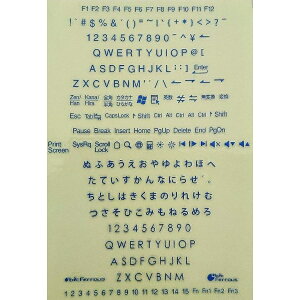 F1 F2 F3 F4 F5 F6 F7 F8 F9 F10 F11 F12
1234567890
QWERTYUIOP@[
ASDFGHJKL;:] Enter
ZXCVBNM
Zen/Han Kana/Hira 全角 カタカナ ひらがな 無変換 変換
Esc Tab CapsLock Shift Ctrl Alt Ctrl Alt Shift
Pause Break Insert Home PgUp Delete End PgDn
Print Screen SysRq Scroll Lock
ぬふあうえおやゆよわほへ
たていすかんなにらせ
ちとしはきくまのりれけむ
つさそひこみもねるめろ
1234567890
QWERTYUIOP
ASDFGHJKL
ZXCVBNM
1 2 3 4 5 6 7 8 9 10 11 12 13 14 15 Fn Fn1 Fn2 Fn3